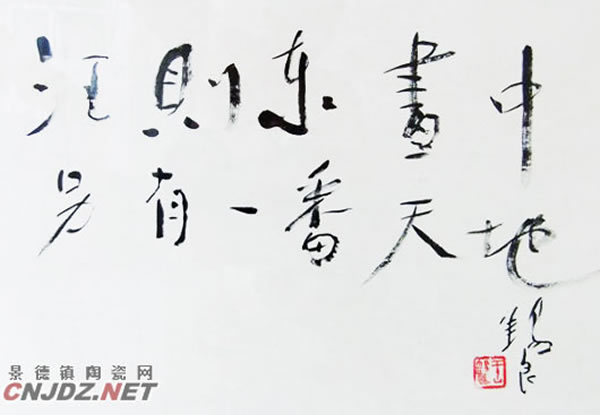 汪則東畫中
另有一番天地
錫良
景德镇陶瓷网
CNJDZ.NET